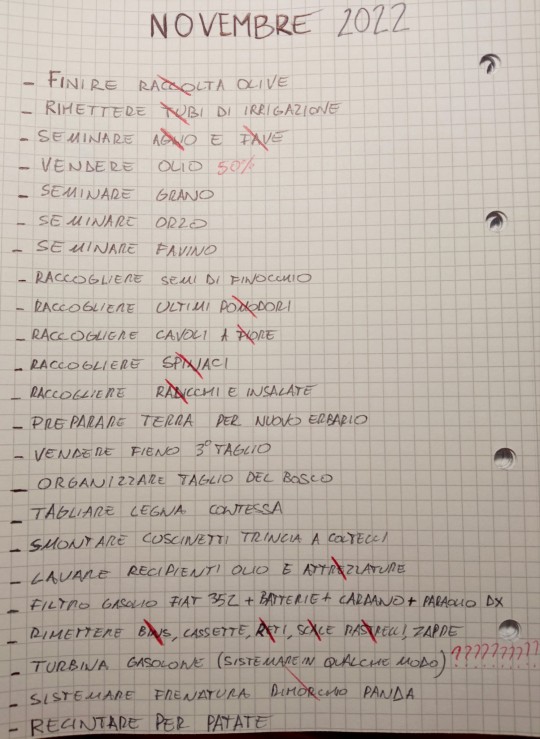 NOVEMBRE 2022
- FINIRE RACCOLTA OLIVE
- RIMETTERE TUBI DI IRRIGAZIONE
- SEMINARE AGLIO E FAVE
- VENDERE OLIO 50%
- SEMINARE GRANO
- SEMINARE ORZO
- SEMINARE FAVINO
- RACCOGLIERE SEMI DI FINOCCHIO
- RACCOGLIERE ULTIMI POMODORI
- RACCOGLIERE CAVOLI A FIORE
- RACCOGLIERE SPINACI
- RACCOGLIERE RADICCHI E INSALATE
- PREPARARE TERRA PER NUOVO ERBARIO
- VENDERE FIENO 3° TAGLIO
- ORGANIZZARE TAGLIO DEL BOSCO
- TAGLIARE LEGNA CONTESSA
- SMONTARE CUSCINETTI TRINCIA A COLTELLI
- LAVARE RECIPIENTI OLIO E ATTREZZATURE
- FILTRO GASOLIO FIAT 352 + BATTERIE + CARDANO + PARAOLIO DX
- RIMETTERE BINS, CASSETTE, RETI, SCALE RASTRELLI, ZAPPE
- TURBINA GASOLONE (SISTEMARE IN QUALCHE MODO) ??????????
- SISTEMARE FRENATURA RIMORCHIO PANDA
- RECINTARE PER PATATE